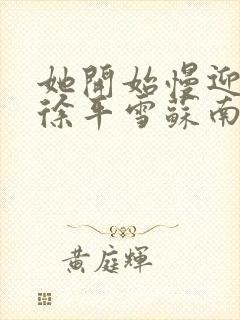 她開始慢迎
徐平雪蘇南
黃庭輝